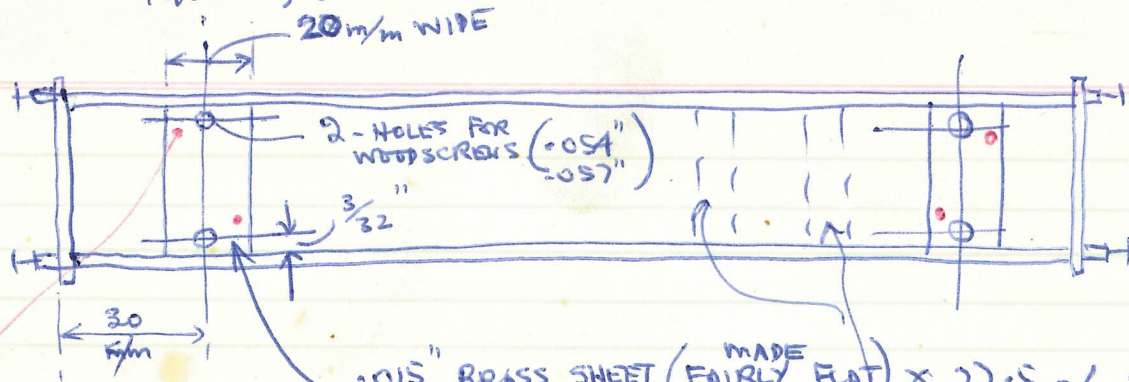 20 m/m WIDE
2-HOLES FOR
WOODSCREWS (.054"
.057")
3/32"
30
m/m
.015" BRASS SHEET (MADE FAIRLY FLAT) X 22.5